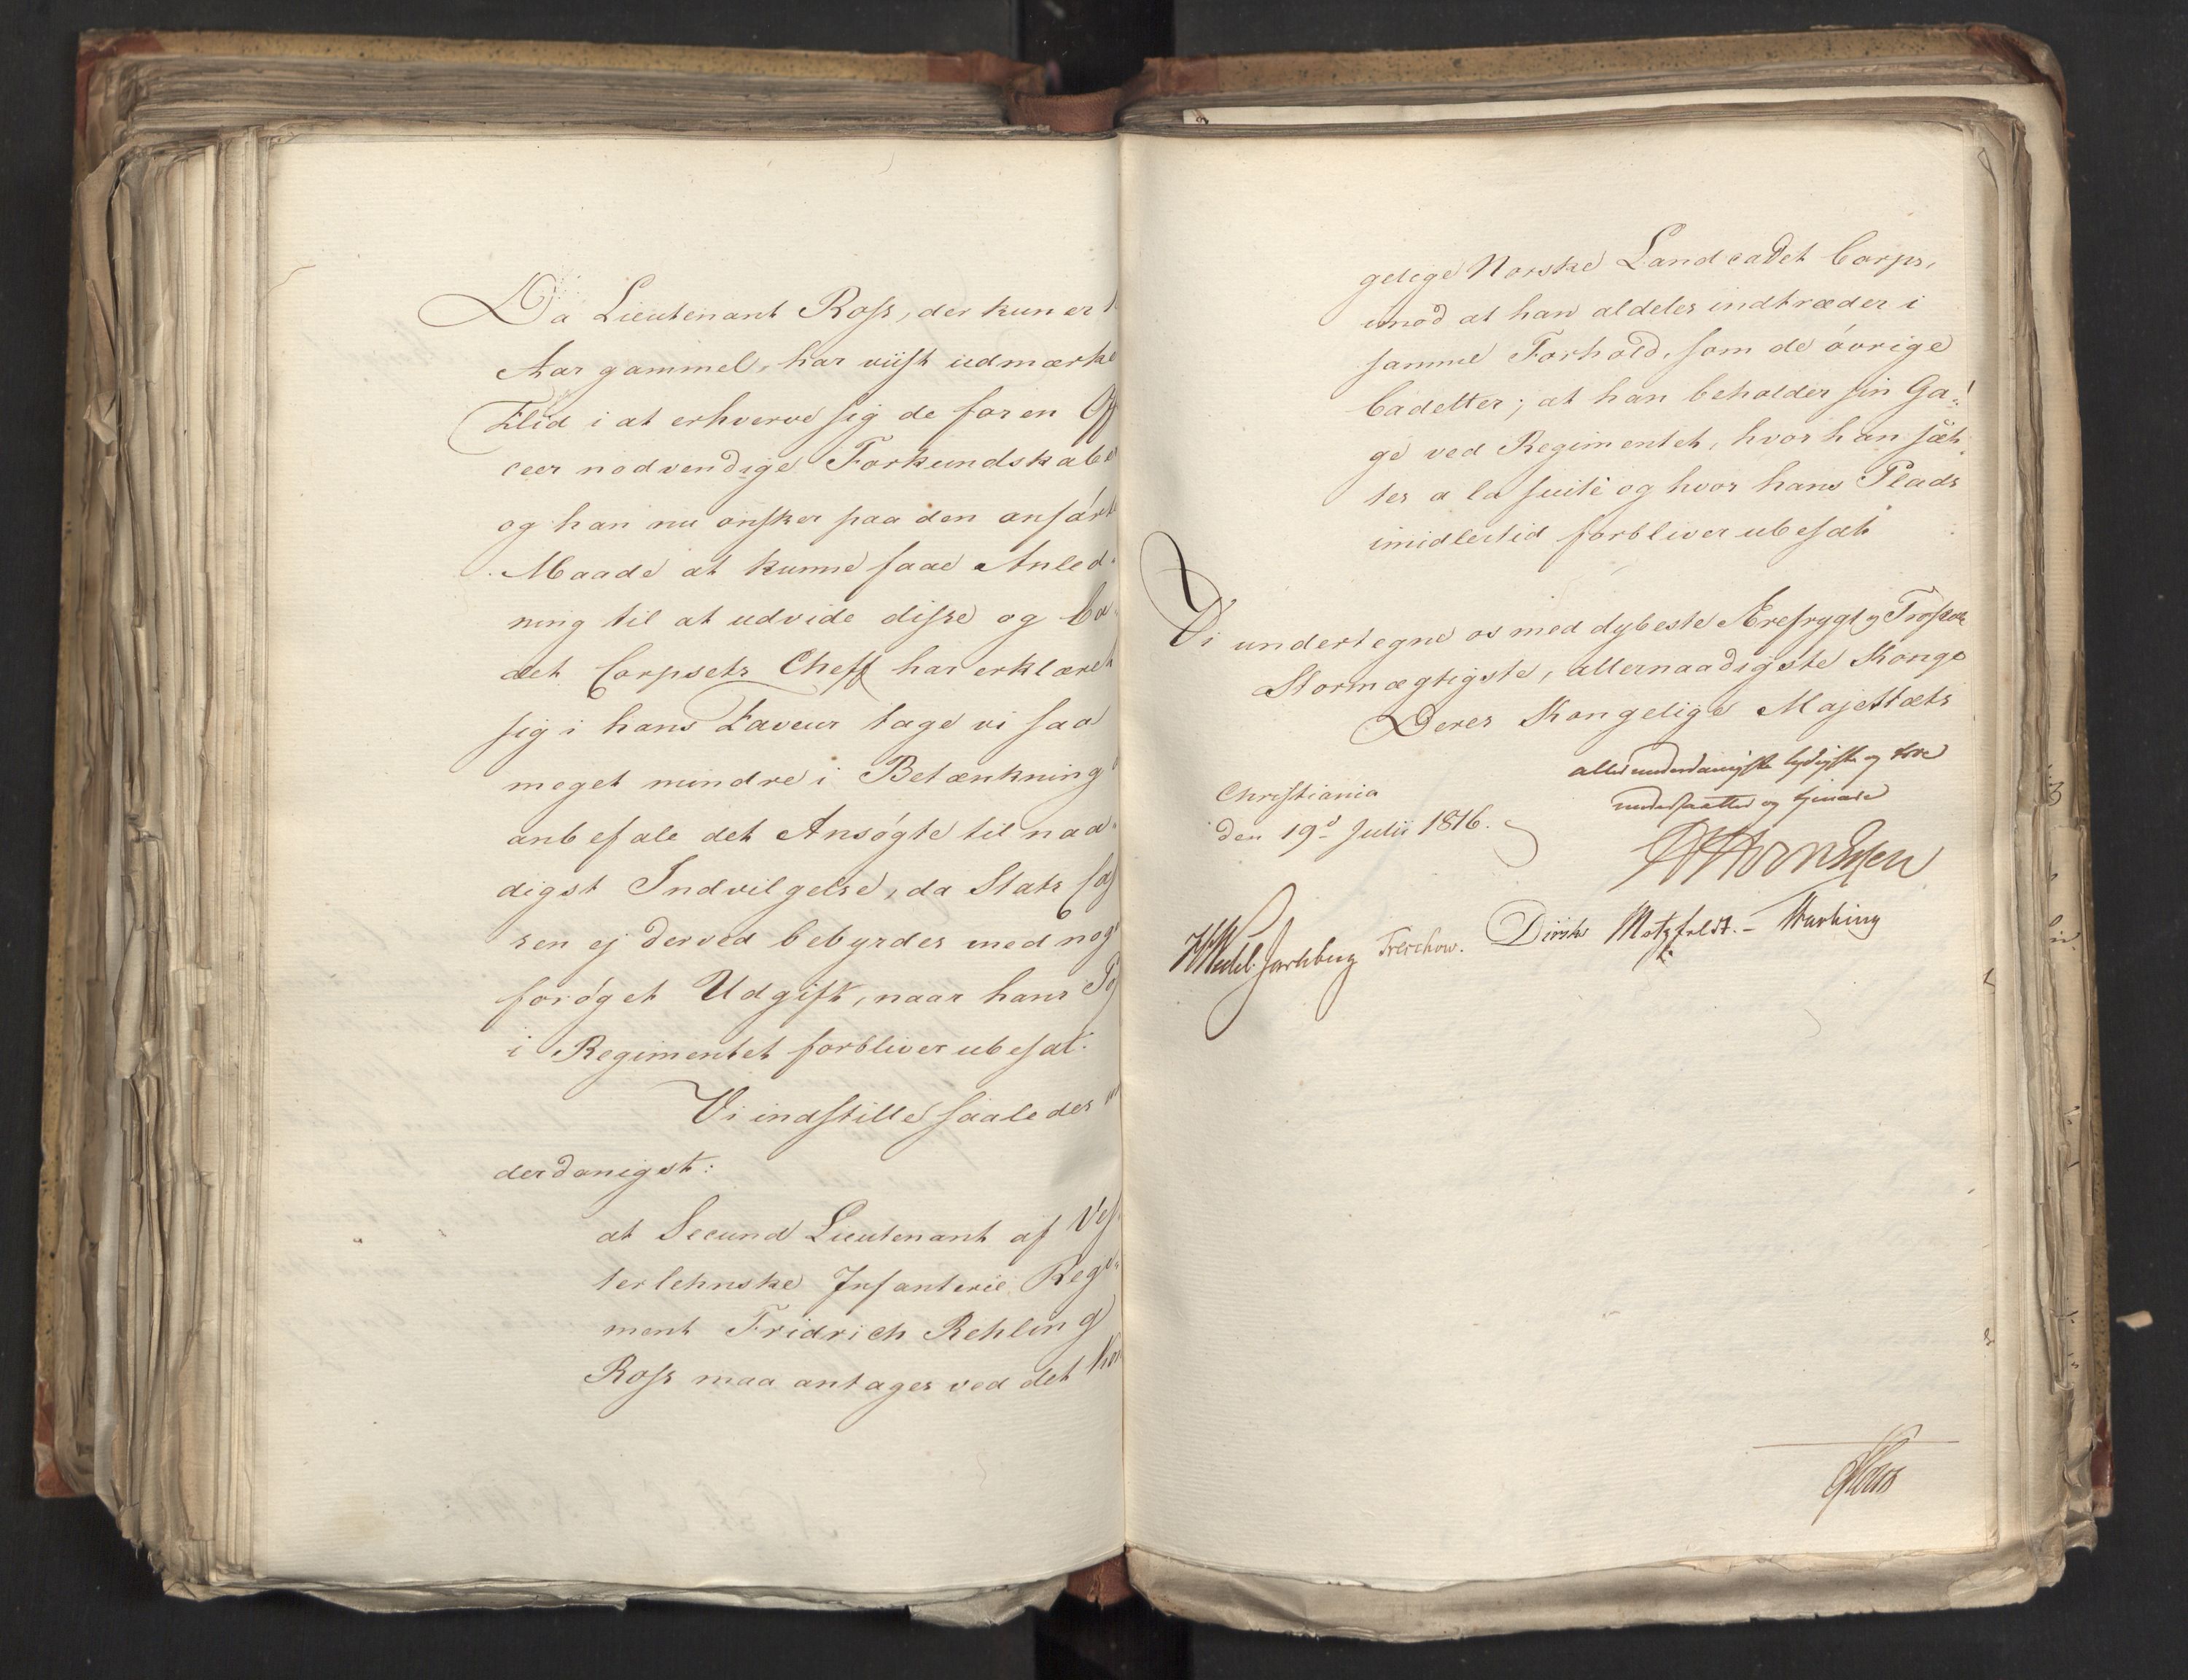 Da Lieutenant Ross, der kun er
Aar gammel, har viist udmærke
Flid i at erhverve sig de for en Off
ceer nodvendige Forkundskabe
og han nu ønsker paa den anførte
Maade at kunne faae Anled-
ning til at udvide disse og Ca-
det Corpsets Cheff har erklæret
sig i hans Faveur tage vi saa
meget mindre i Betænkning
anbefale det Ansøgte til naa-
digst Indvilgelse, da Stats Cas
sen ej derved bebyrdes med nog
forøget Udgift, naar hans Po
i Regimentet forbliver ubesat.
Vi indstille saaledes
derdanigst:
at Secund Lieutenant af Ves-
terlehnske Infanterie Regi-
ment Fridrich Rehling
Ross maa antages ved det Kon
gelige Norske Landcadet Corps,
imod at han aldeles indtræder i
samme Forhold, som de øvrige
Cadetter; at han beholder sin Ga-
ge ved Regimentet, hvor han sæt-
tes a la suite og hvor hans Plads
imidlertid forbliver ubesat
Vi undertegne os med dybeste Ærefrygt og Troskab
Stormægtigste, allernaadigste Konge
Deres Kongelige Majestæts
allerunderdanigste lydigste og troe
undersaatter og tjenere
Christiania
den 19d Julii 1816.
Wedel Jarlsberg Treschow. Diriks Motzfeldt.